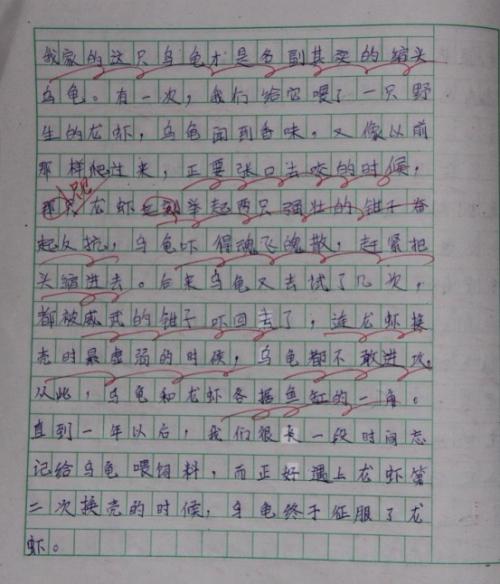 我家的这只乌龟才是名副其实的缩头
乌龟。有一次，我们给它喂了一只野
生的龙虾，乌龟闻到香味，又像以前
那样爬过来，正要张口去咬的时候，
只见
龙虾举起两只强壮的钳子奋
起反抗，乌龟吓得魂飞魄散，赶紧把
头缩进去。后来乌龟又去试了几次，
都被威武的钳子吓回去了，连龙虾换
壳时最虚弱的时候，乌龟都不敢进攻。
从此，乌龟和龙虾各据鱼缸的一角。
直到一年以后，我们很长一段时间忘
记给乌龟喂饲料，而正好遇上龙虾第
二次换壳的时候，乌龟终于征服了龙
虾。